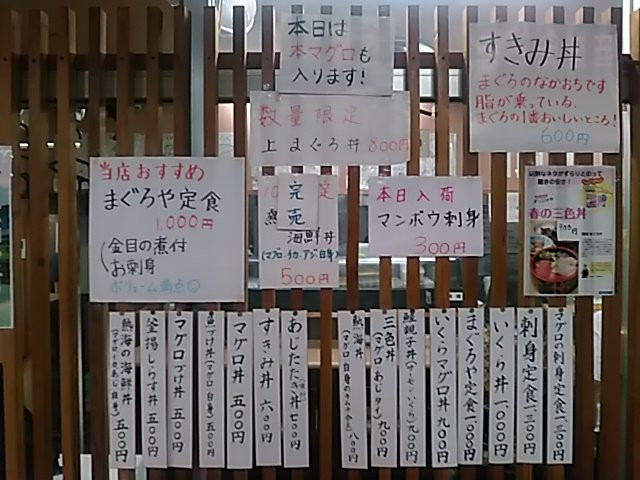 本日は
本マグロも
入ります!
すきみ丼
まぐろのなかおちです
脂が乗っている、
まぐろの1番おいしいところ!
600円
数量限定
上まぐろ丼 800円
当店おすすめ
まぐろや定食
1,000円
金目の煮付
お刺身
ボリューム満点
完売
海鮮丼
500円
本日入荷
マンボウ刺身
300円
春の三色丼
マグロの刺身定食一、三〇〇円
刺身定食一、三〇〇円
いくら丼 一、〇〇〇円
まぐろや定食一、〇〇〇円
いくらマグロ丼 九〇〇円
鮭親子丼(サーモン・いくら)九〇〇円
三色丼(マグロ・あじ・タイ) 九〇〇円
熱海丼 八〇〇円
あじたたき丼 七〇〇円
すきみ丼 六〇〇円
マグロ丼 五〇〇円
魚づけ丼(マグロ 白身)五〇〇円
マグロづけ丼 五〇〇円
釜揚しらす丼 五〇〇円
熱海の海鮮丼 五〇〇円